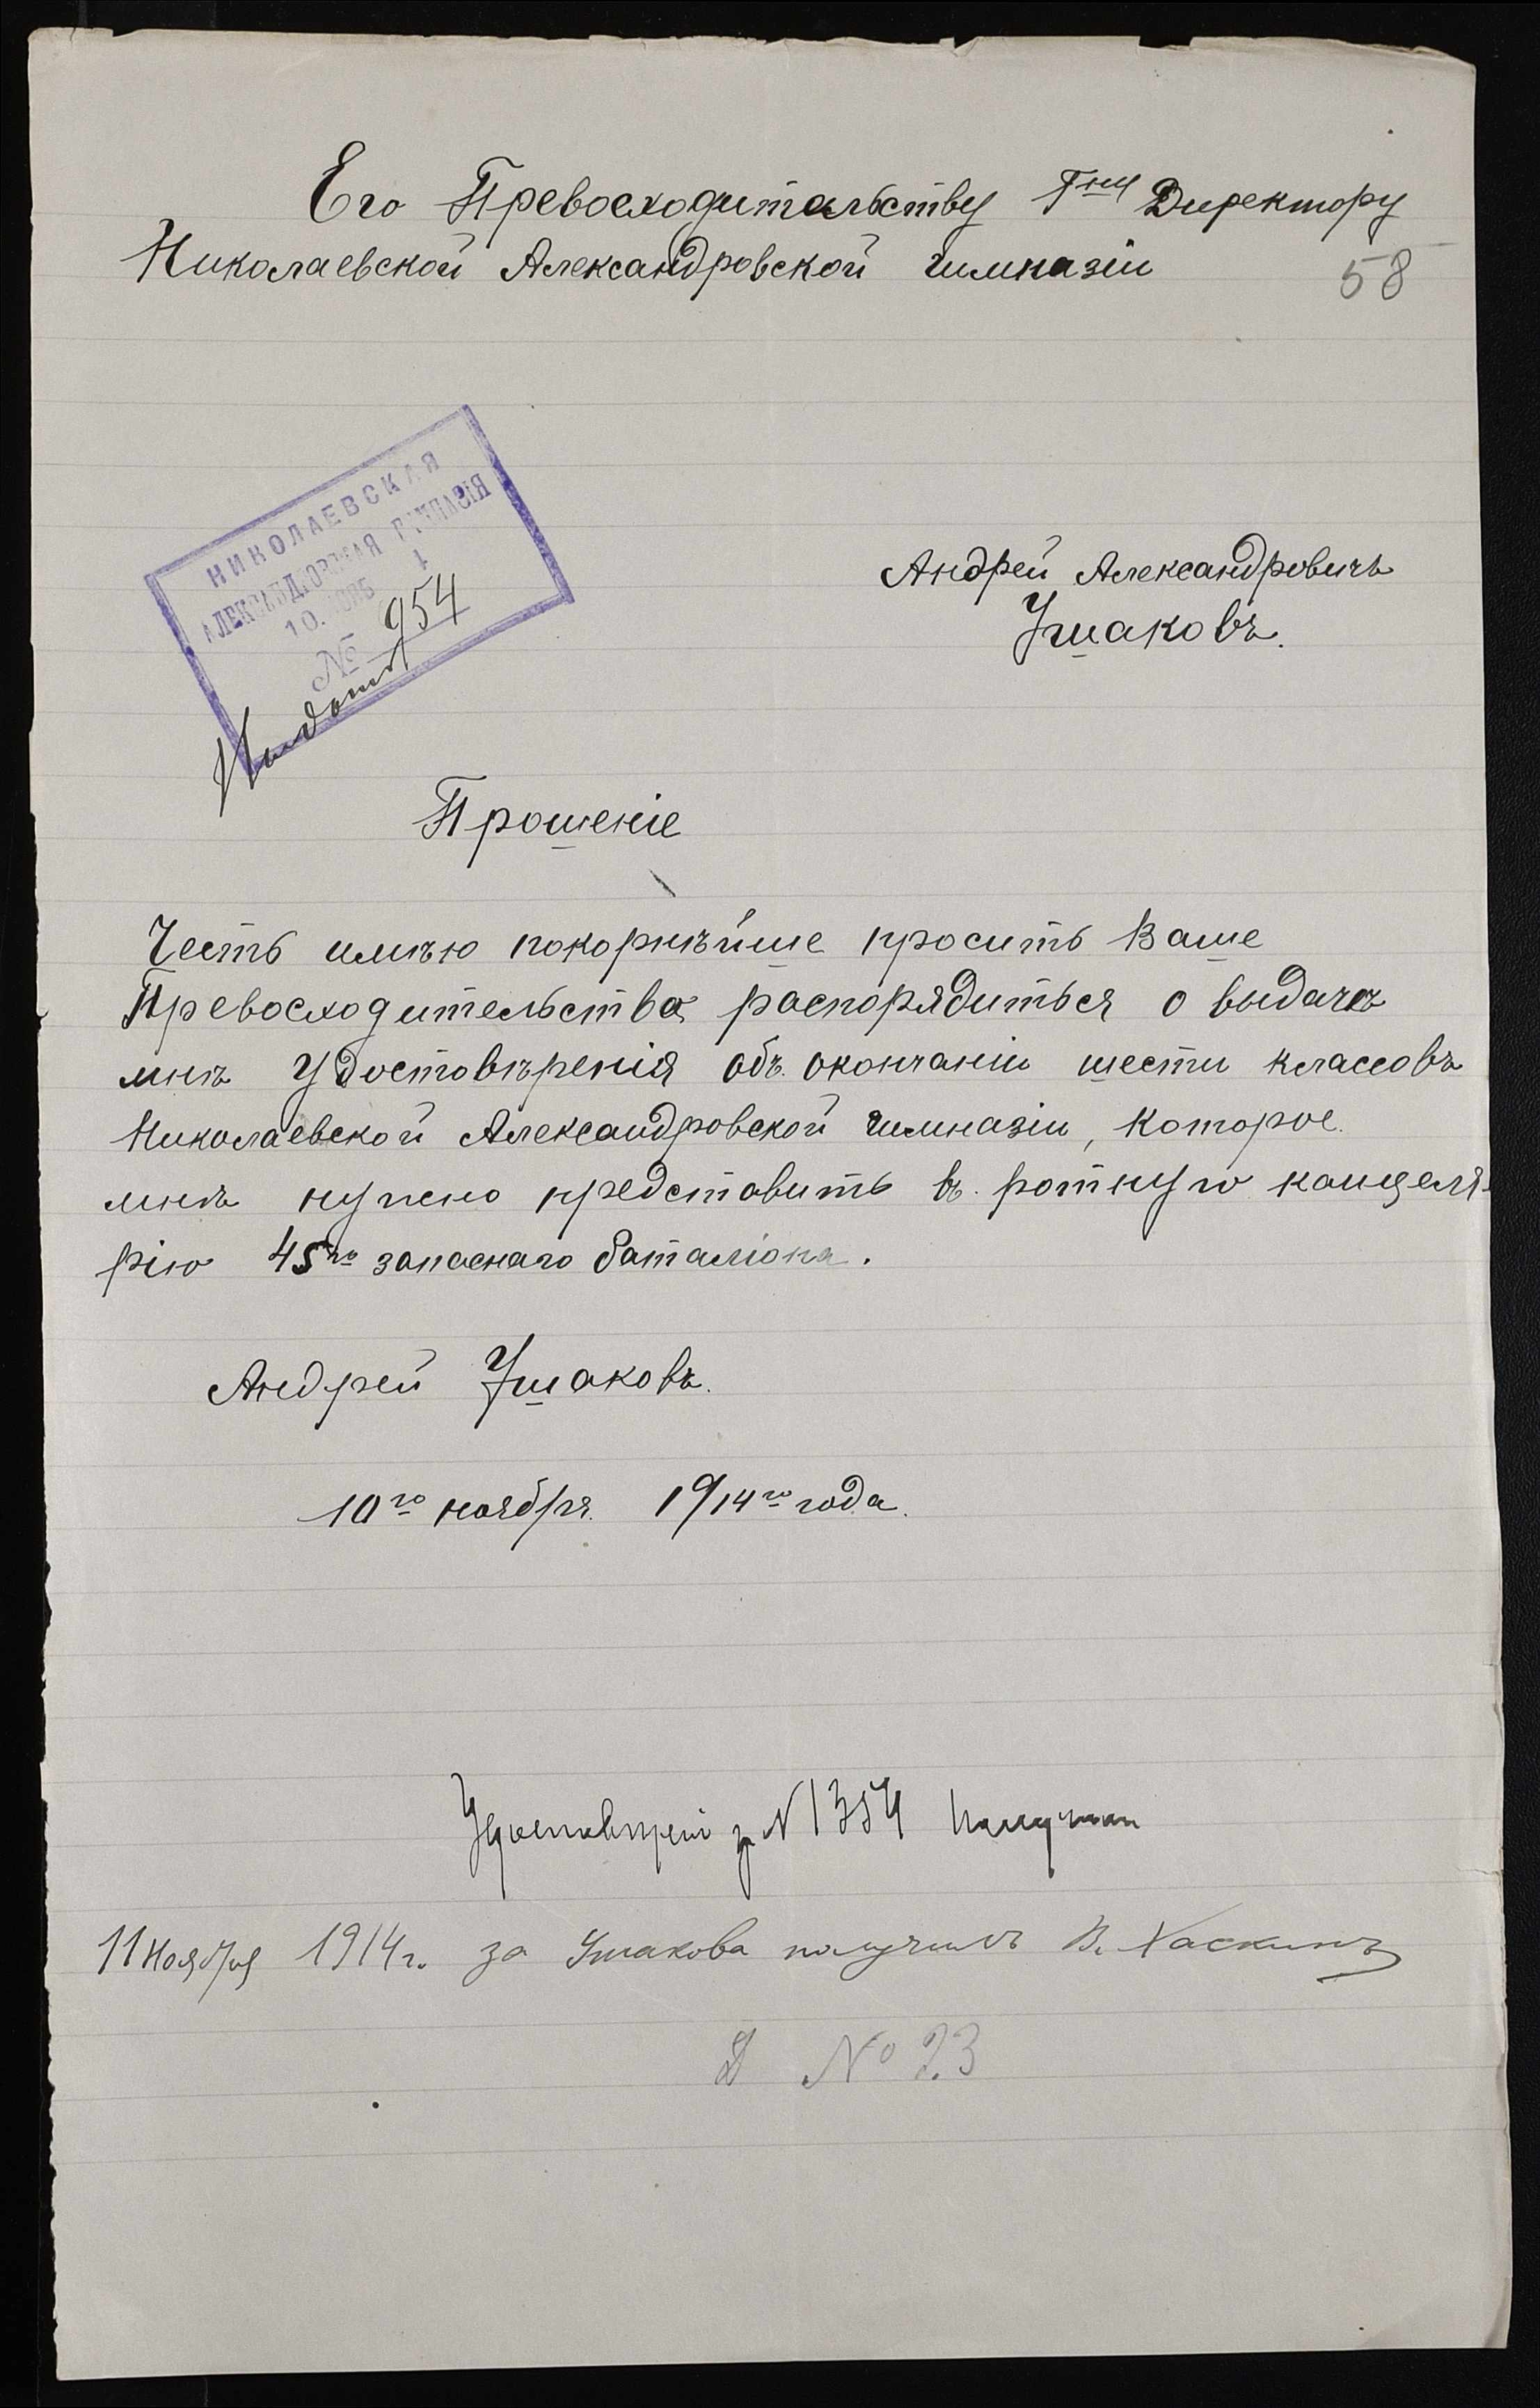 Его Превосходительству Г<sup>ну</sup> Директору
Николаевской Александровской гимназіи
58
НИКОЛАЕВСКАЯ
АЛЕКСАНДРОВСКАЯ ГИМНАЗІЯ
10. НОЯБ 1
№ 954
Выдать
Андрей Александровичъ
Ушаковъ.
Прошеніе
Честь имѣю покорнѣйше просить Ваше
Превосходительство распорядиться о выдачѣ
мнѣ удостовѣренія объ окончаніи шести классовъ
Николаевской Александровской гимназіи, которое
мнѣ нужно представить въ ротную канцеля-
рію 45<sup>го</sup> запаснаго баталіона.
Андрей Ушаковъ.
10<sup>го</sup> ноября 1914<sup>го</sup> года.
Удостовѣреніе за N 1354 получилъ
11 Ноября 1914 г. за Ушакова получилъ В. Хаскинъ
Д № 23